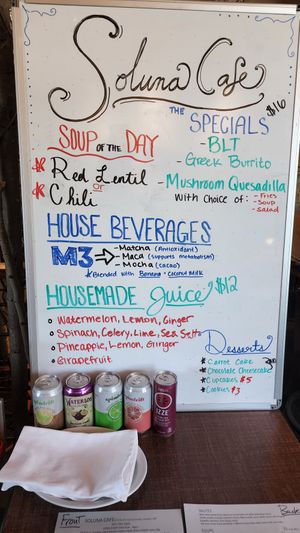 Soluna Cafe
THE SPECIALS $16
- BLT
- Greek Burrito
- Mushroom Quesadilla
WITH CHOICE OF: - Fries
- Soup
- Salad
SOUP OF THE DAY
* Red Lentil
or
* Chili
HOUSE BEVERAGES
M3 → - Matcha (Antioxidant)
→ - Maca (supports metabolism)
→ - Mocha (cacao)
* Blended with Banana + Coconut Milk
HOUSEMADE Juice $12
○ Watermelon, Lemon, Ginger
○ Spinach, Celery, Lime, Sea Salt
○ Pineapple, Lemon, Ginger
○ Grapefruit
Desserts
* Carrot Cake
* Chocolate Cheesecake
* Cupcakes $5
* Cookies $3
WATERLOO
IZZE
Front SOLUNA CAFE
Back